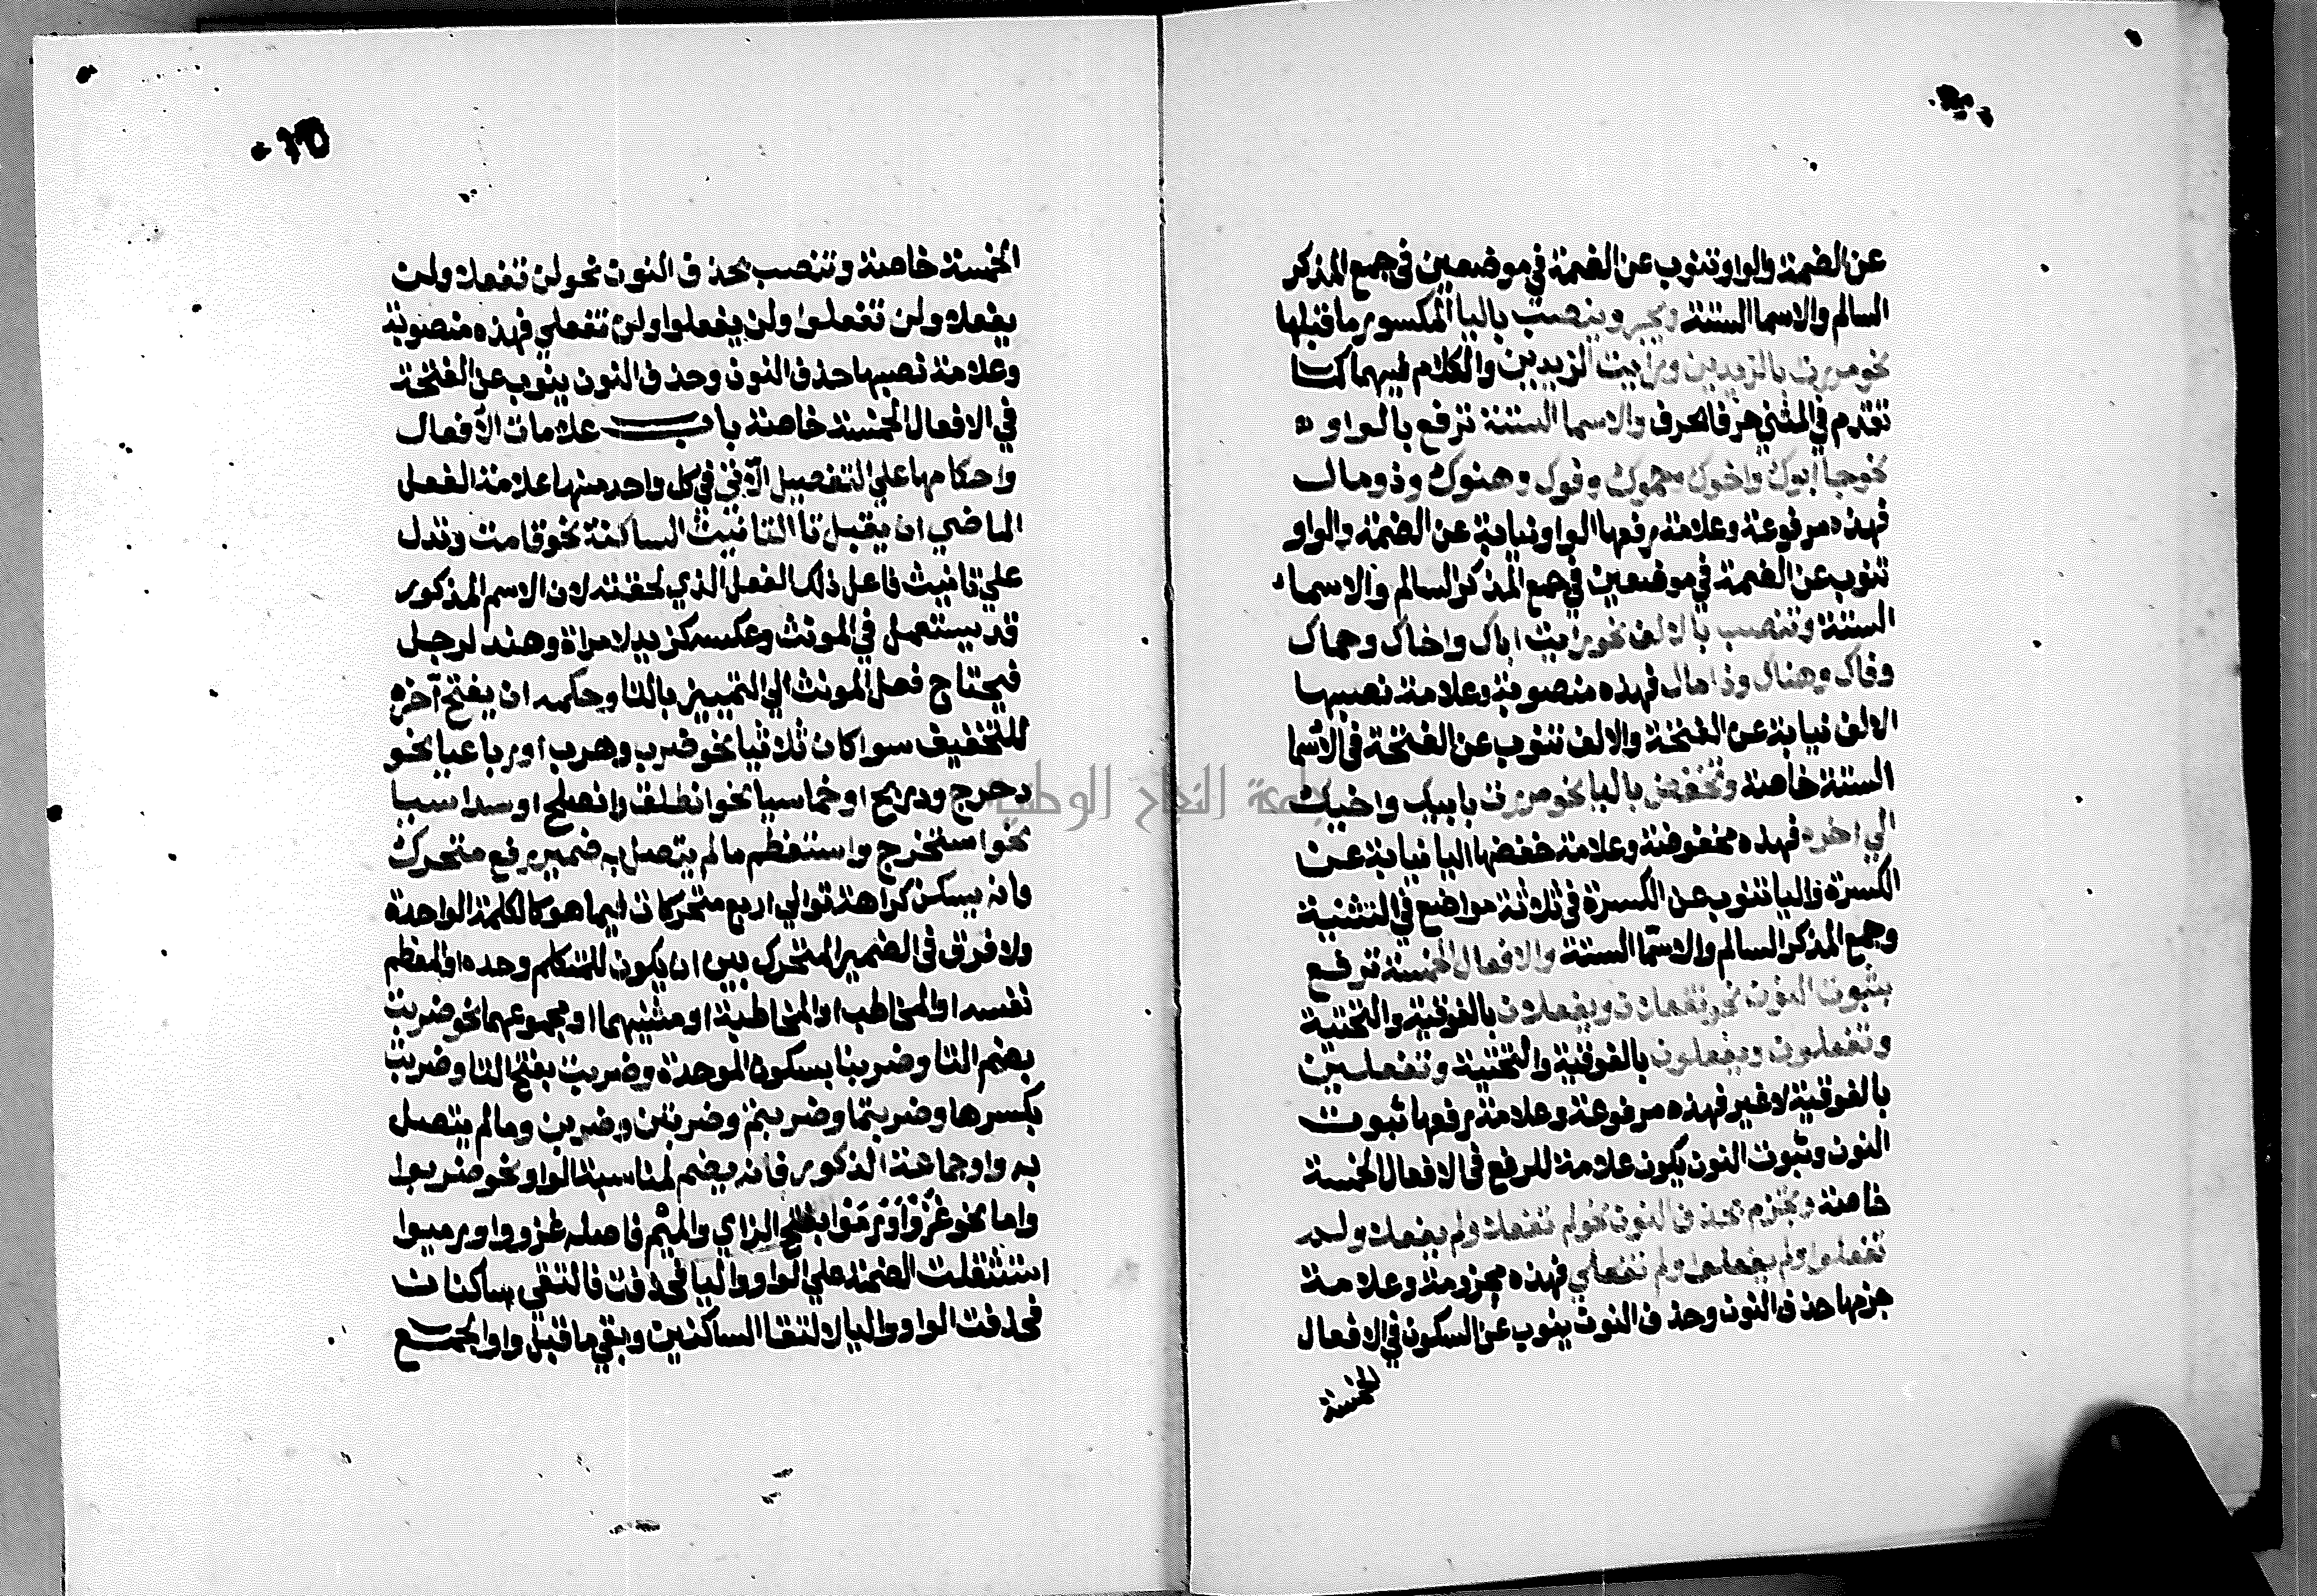 عن الضمة والواو تنوب عن الضمة في موضعين في جمع المذكر
السالم والاسما الستة ويجر وينصب باليا المكسور ما قبلها
نحو مررت بالزيدين ورايت الزيدين والكلام فيهما كما
تقدم في المثني حرفا بحرف والاسما الستة ترفع بالواو
نحو جا ابوك واخوك وحموك وفوك وهنوك وذو مال
فهذه مرفوعة وعلامة رفعها الواو نيابة عن الضمة والواو
تنوب عن الضمة في موضعين في جمع المذكر السالم والاسما
الستة وتنصب بالالف نحو رايت اباك واخاك وحماك
وفاك وهناك وذا مال فهذه منصوبة وعلامة نصبها
الالف نيابة عن الفتحة والالف تنوب عن الفتحة في الاسما
الستة خاصة وتخفض باليا نحو مررت بابيك واخيك
الي اخره فهذه مخفوضة وعلامة خفضها اليا نيابة عن
الكسرة واليا تنوب عن الكسرة في ثلاثة مواضع في التثنية
وجمع المذكر السالم والاسما الستة والافعال الخمسة ترفع
بثبوت النون نحو تفعلان ويفعلان بالفوقية والتحتية
وتفعلون ويفعلون بالفوقية والتحتية وتفعلين
بالفوقية لا غير فهذه مرفوعة وعلامة رفعها ثبوت
النون وثبوت النون يكون علامة للرفع في الافعال الخمسة
خاصة وتجزم بحذف النون نحو لم تفعلا ولم يفعلا ولم
تفعلوا ولم يفعلوا ولم تفعلي فهذه مجزومة وعلامة
جزمها حذف النون وحذف النون ينوب عن السكون في الافعال
الخمسة
٠٦٥
الخمسة خاصة وتنصب بحذف النون نحو لن تفعلا ولن
يفعلا ولن تفعلوا ولن يفعلوا ولن تفعلي فهذه منصوبة
وعلامة نصبها حذف النون وحذف النون ينوب عن الفتحة
في الافعال الخمسة خاصة باب علامات الأفعال
واحكامها علي التفصيل الآتي في كل واحد منها علامة الفعل
الماضي ان يقبل تا التانيث الساكنة نحو قامت وتدل
علي تانيث فاعل ذلك الفعل الذي لحقته لان الاسم المذكور
قد يستعمل في المونث وعكسه كزيد لامراة وهند لرجل
فيحتاج فعل المونث الي التمييز بالتا وحكمه ان يفتح آخره
للتخفيف سوا كان ثلاثيا نحو ضرب وهرب او رباعيا نحو
دحرج ودربح او خماسيا نحو انطلق وانصلح او سداسيا
نحو استخرج واستعظم ما لم يتصل به ضمير رفع متحرك
فانه يسكن كراهة توالي اربع متحركات فيما هو كالكلمة الواحدة
ولا فرق في الضمير المتحرك بين ان يكون للمتكلم وحده او المعظم
نفسه او المخاطب او المخاطبة او مثنيهما او مجموعهما نحو ضربت
بضم التا وضربنا بسكون الموحدة وضربت بفتح التا وضربت
بكسرها وضربتما وضربتم وضربتن وضربن وما لم يتصل
به واو جماعة الذكور فانه يضم لمناسبة الواو نحو ضربوا
واما نحو غزوا ورموا بفتح الزاي والميم فاصله غزووا ورميوا
استثقلت الضمة علي الواو واليا فحذفت فالتقي ساكنان
فحذفت الواو واليا لالتقا الساكنين وبقي ما قبل واو الجمع
جامعة النجاح الوطنية